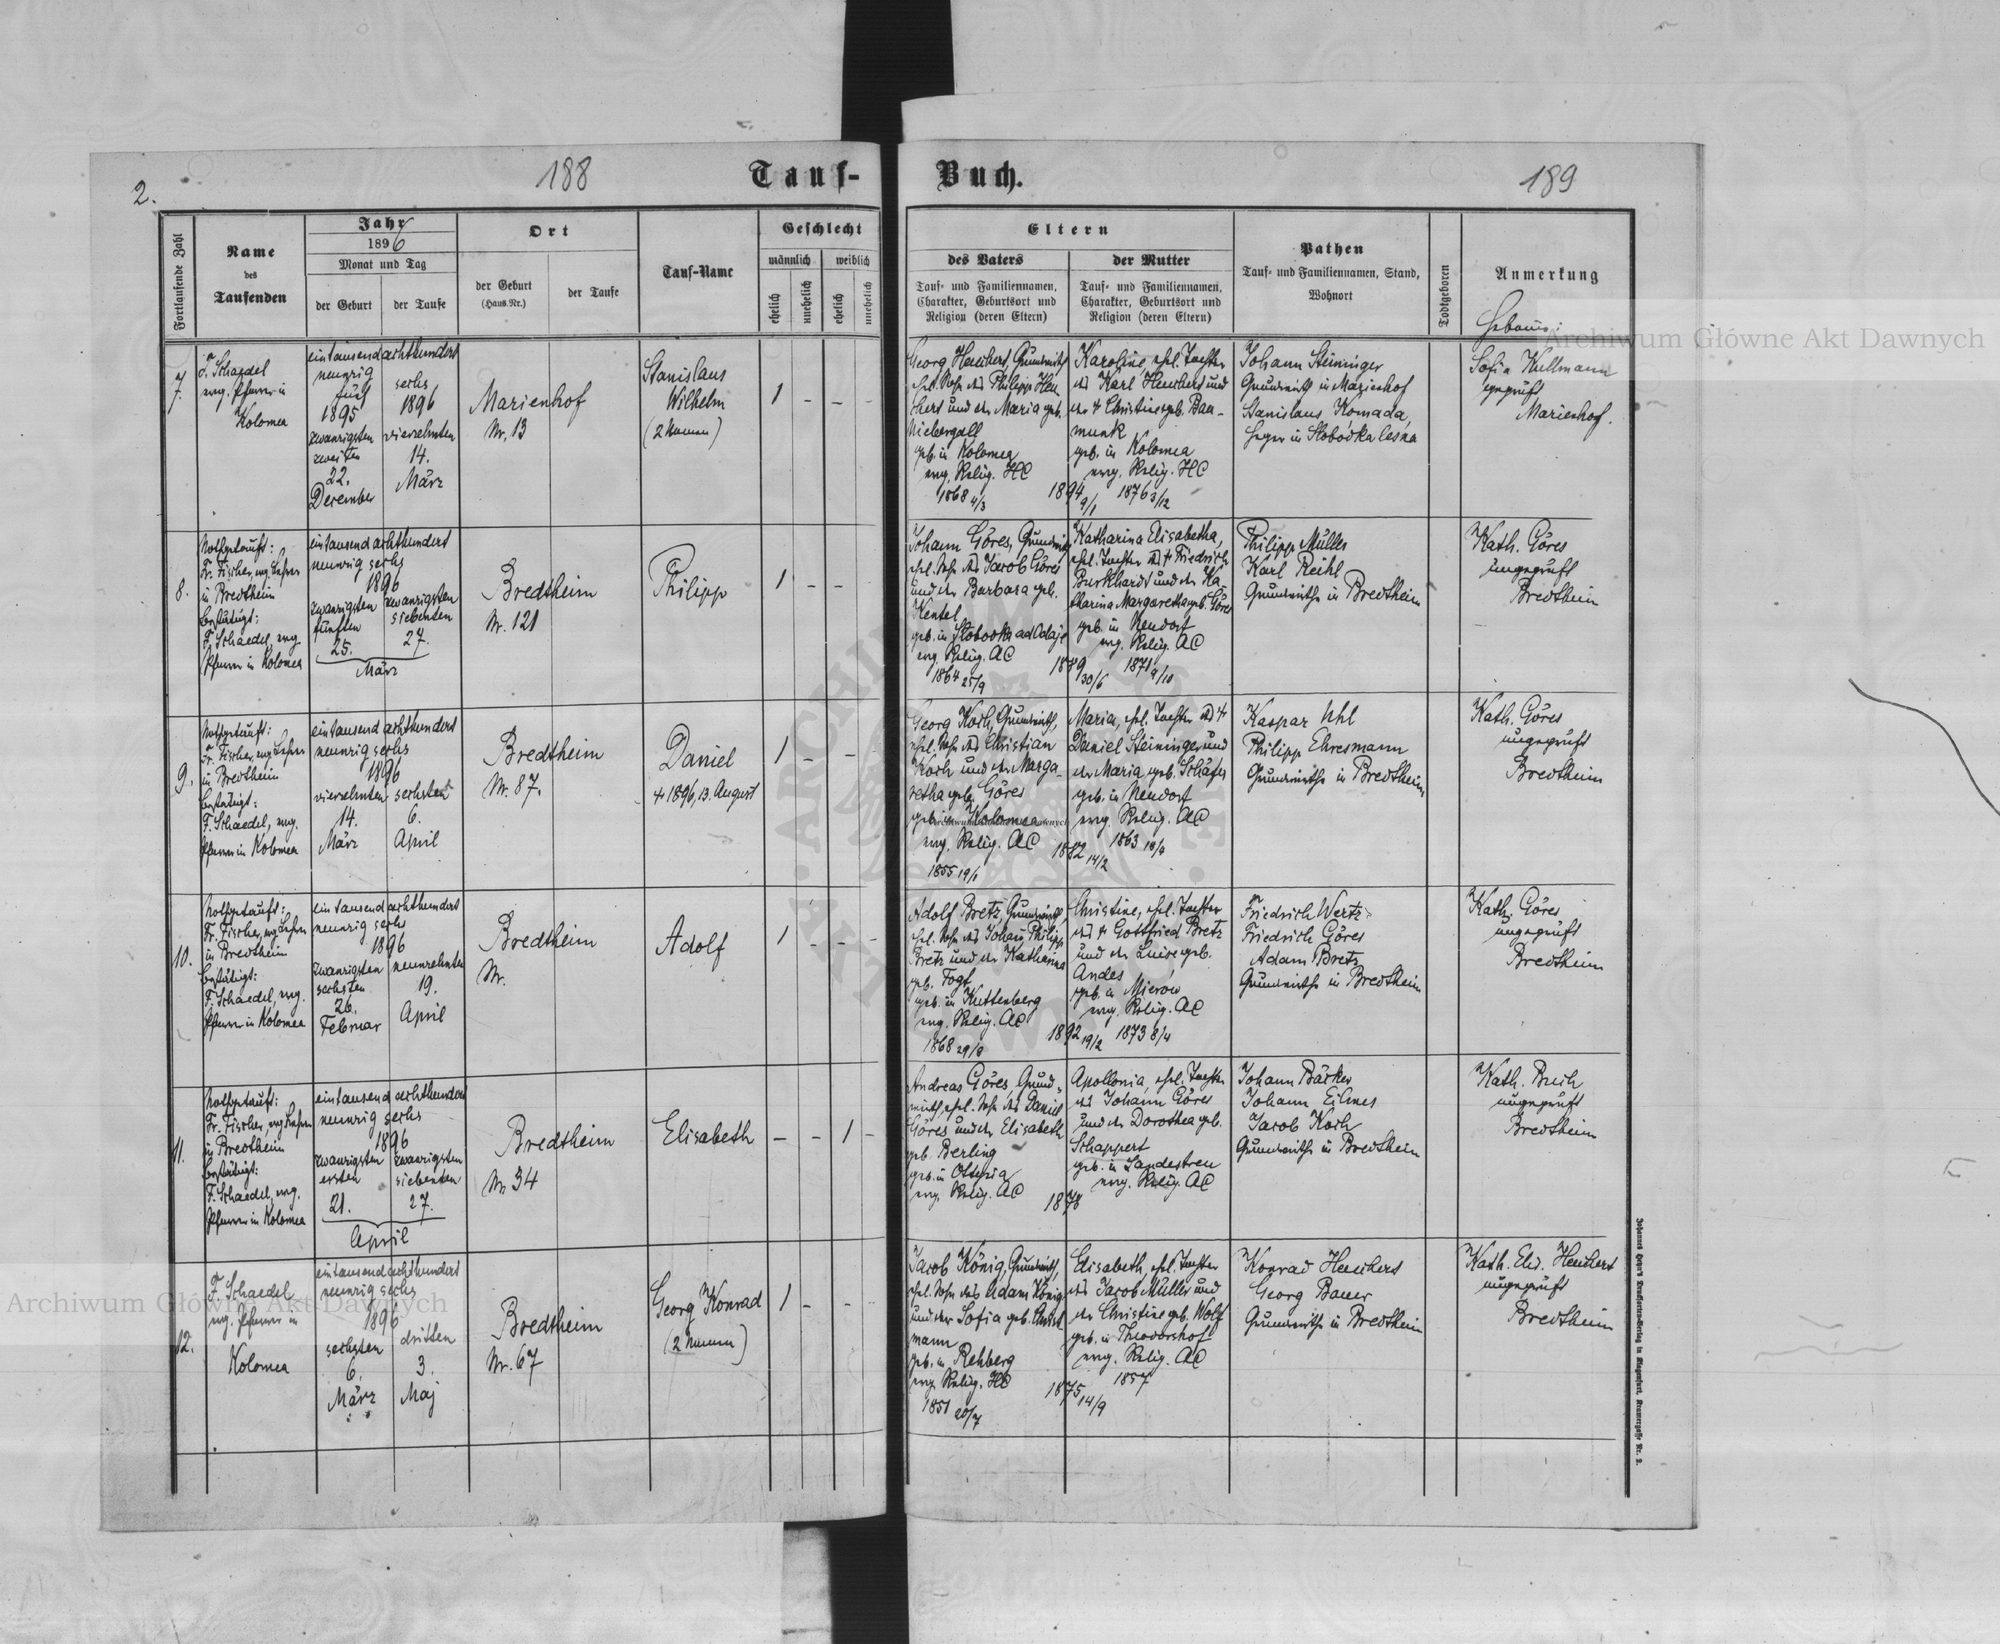 2.
188
Tauf-
Buch.
189
Fortlaufende Zahl
Name
des
Taufenden
Jahr
1896
Monat und Tag
der Geburt
der Taufe
Ort
der Geburt
(Haus.Nr.)
der Taufe
Tauf-Name
Geschlecht
männlich
weiblich
ehelich
unehelich
ehelich
unehelich
Eltern
des Vaters
Tauf- und Familiennamen,
Charakter, Geburtsort und
Religion (deren Eltern)
der Mutter
Tauf- und Familiennamen,
Charakter, Geburtsort und
Religion (deren Eltern)
Pathen
Tauf- und Familiennamen, Stand,
Wohnort
Todtgeboren
Anmerkung
7.
F. Schaedel
evg. Pfarrer in
Kolomea
eintausendachthundert
neunzig
fünf
1895
zwanzigsten
zweiten
22.
December
sechs
1896
vierzehnten
14.
März
Marienhof
Nr. 13
Stanislaus
Wilhelm
(2 Namen)
1 - - -
Georg Heuchert, Grundwirth
ehel. Sohn des Philipp Heu
chert und der Maria geb.
Niebergall
geb. in Kolomea
evg. Relig. HC
1868 4/3
1894 9/1
Karoline, ehel. Tochter
des Karl Heuchert und
der + Christine geb. Bau-
munk
geb. in Kolomea
evg. Relig. HC
1876 3/12
Johann Steininger
Grundwirth in Marienhof
Stanislaus Komada,
Heger in Slobódka lesna
Sofia Kullmann
ungeprüft
Marienhof.
8.
Nothgetauft:
Fr. Fischer, evg. Lehrer
in Bredtheim
bestätigt:
F. Schaedel, evg.
Pfarrer in Kolomea
eintausend achthundert
neunzig sechs
1896
zwanzigsten
fünften
25.
zwanzigsten
siebenten
27.
März
Bredtheim
Nr. 121
Philipp
1 - -
Johann Göres, Grundwirth
ehel. Sohn des Jacob Göres
und der Barbara geb.
Kentel
geb. in Slobodka ad Odaje
evg. Relig. AC
1864 25/9
30/6
Katharina Elisabetha,
ehel. Tochter des + Friedrich
Burkhardt und der Ka-
tharina Margaretha geb. Göres
geb. in Neudorf
evg. Relig. AC
1871 9/10
Philipp Müller
Karl Reihl
Grundwirthe in Bredtheim
Kath. Göres
ungeprüft
Bredtheim
9.
Nothgetauft:
Fr. Fischer, evg. Lehrer
in Bredtheim
bestätigt:
F. Schaedel, evg.
Pfarrer in Kolomea
eintausend achthundert
neunzig sechs
1896
vierzehnten
14.
März
sechsten
6.
April
Bredtheim
Nr. 87.
Daniel
+ 1896, 13. August
1 - -
Georg Koch, Grundwirth,
ehel. Sohn des Christian
Koch und der Marga-
retha geb. Göres
geb. in Kolomea
evg. Relig. AC
1855 19/1
1882 14/2
Maria, ehel. Tochter des +
Daniel Steininger und
der Maria geb. Schäfer
geb. in Neudorf
evg. Relig. AC
1863
Kaspar Uhl
Philipp Ehresmann
Grundwirthe in Bredtheim
Kath. Göres
ungeprüft
Bredtheim
10.
Nothgetauft:
Fr. Fischer, evg. Lehrer
in Bredtheim
bestätigt:
F. Schaedel, evg.
Pfarrer in Kolomea
eintausend achthundert
neunzig sechs
1896
zwanzigsten
sechsten
26.
Februar
neunzehnten
19.
April
Bredtheim
Nr.
Adolf
1 - - -
Adolf Bretz, Grundwirth
ehel. Sohn des Johann Philipp
Bretz und der Katharina
geb. Fogt
geb. in Kuttenberg
evg. Relig. AC
1868 29/8
1892 19/2
Christine, ehel. Tochter
des + Gottfried Bretz
und der Luise geb.
Andes
geb. in Mierow
evg. Relig. AC
1873 8/4
Friedrich Wertz
Friedrich Göres
Adam Bretz
Grundwirthe in Bredtheim
Kath. Göres
ungeprüft
Bredtheim
11.
Nothgetauft:
Fr. Fischer, evg. Lehrer
in Bredtheim
bestätigt:
F. Schaedel, evg.
Pfarrer in Kolomea
eintausend achthundert
neunzig sechs
1896
zwanzigsten
ersten
21.
zwanzigsten
siebenten
27.
April
Bredtheim
Nr. 34
Elisabeth
- - 1 -
Andreas Göres, Grund-
wirth, ehel. Sohn des Daniel
Göres und der Elisabeth
geb. Berling
geb. in Ottynia
evg. Relig. AC
Apollonia, ehel. Tochter
des Johann Göres
und der Dorothea geb.
Schappert
geb. in Landestreu
evg. Relig. AC
Johann Bäcker
Johann Eilmes
Jacob Koch
Grundwirthe in Bredtheim
Kath. Buch
ungeprüft
Bredtheim
12.
F. Schaedel
evg. Pfarrer in
Kolomea
eintausendachthundert
neunzig sechs
1896
sechsten
6.
März
dritten
3.
Maj
Bredtheim
Nr. 67
Georg Konrad
(2 Namen)
1 - - -
Jacob König, Grundwirth,
ehel. Sohn des Adam König
und der Sofia geb.
mann
geb. in Rehberg
evg. Relig. HC
1851 20/7
1875 14/9
Elisabeth, ehel. Tochter
des Jacob Müller und
der Christine geb. Wolf
geb. in Theodorshof
evg. Relig. AC
1857
Konrad Heuchert
Georg Bauer
Grundwirthe in Bredtheim
Kath. Elis. Heuchert
ungeprüft
Bredtheim
Archiwum Główne Akt Dawnych
Archiwum Główne Akt Dawnych